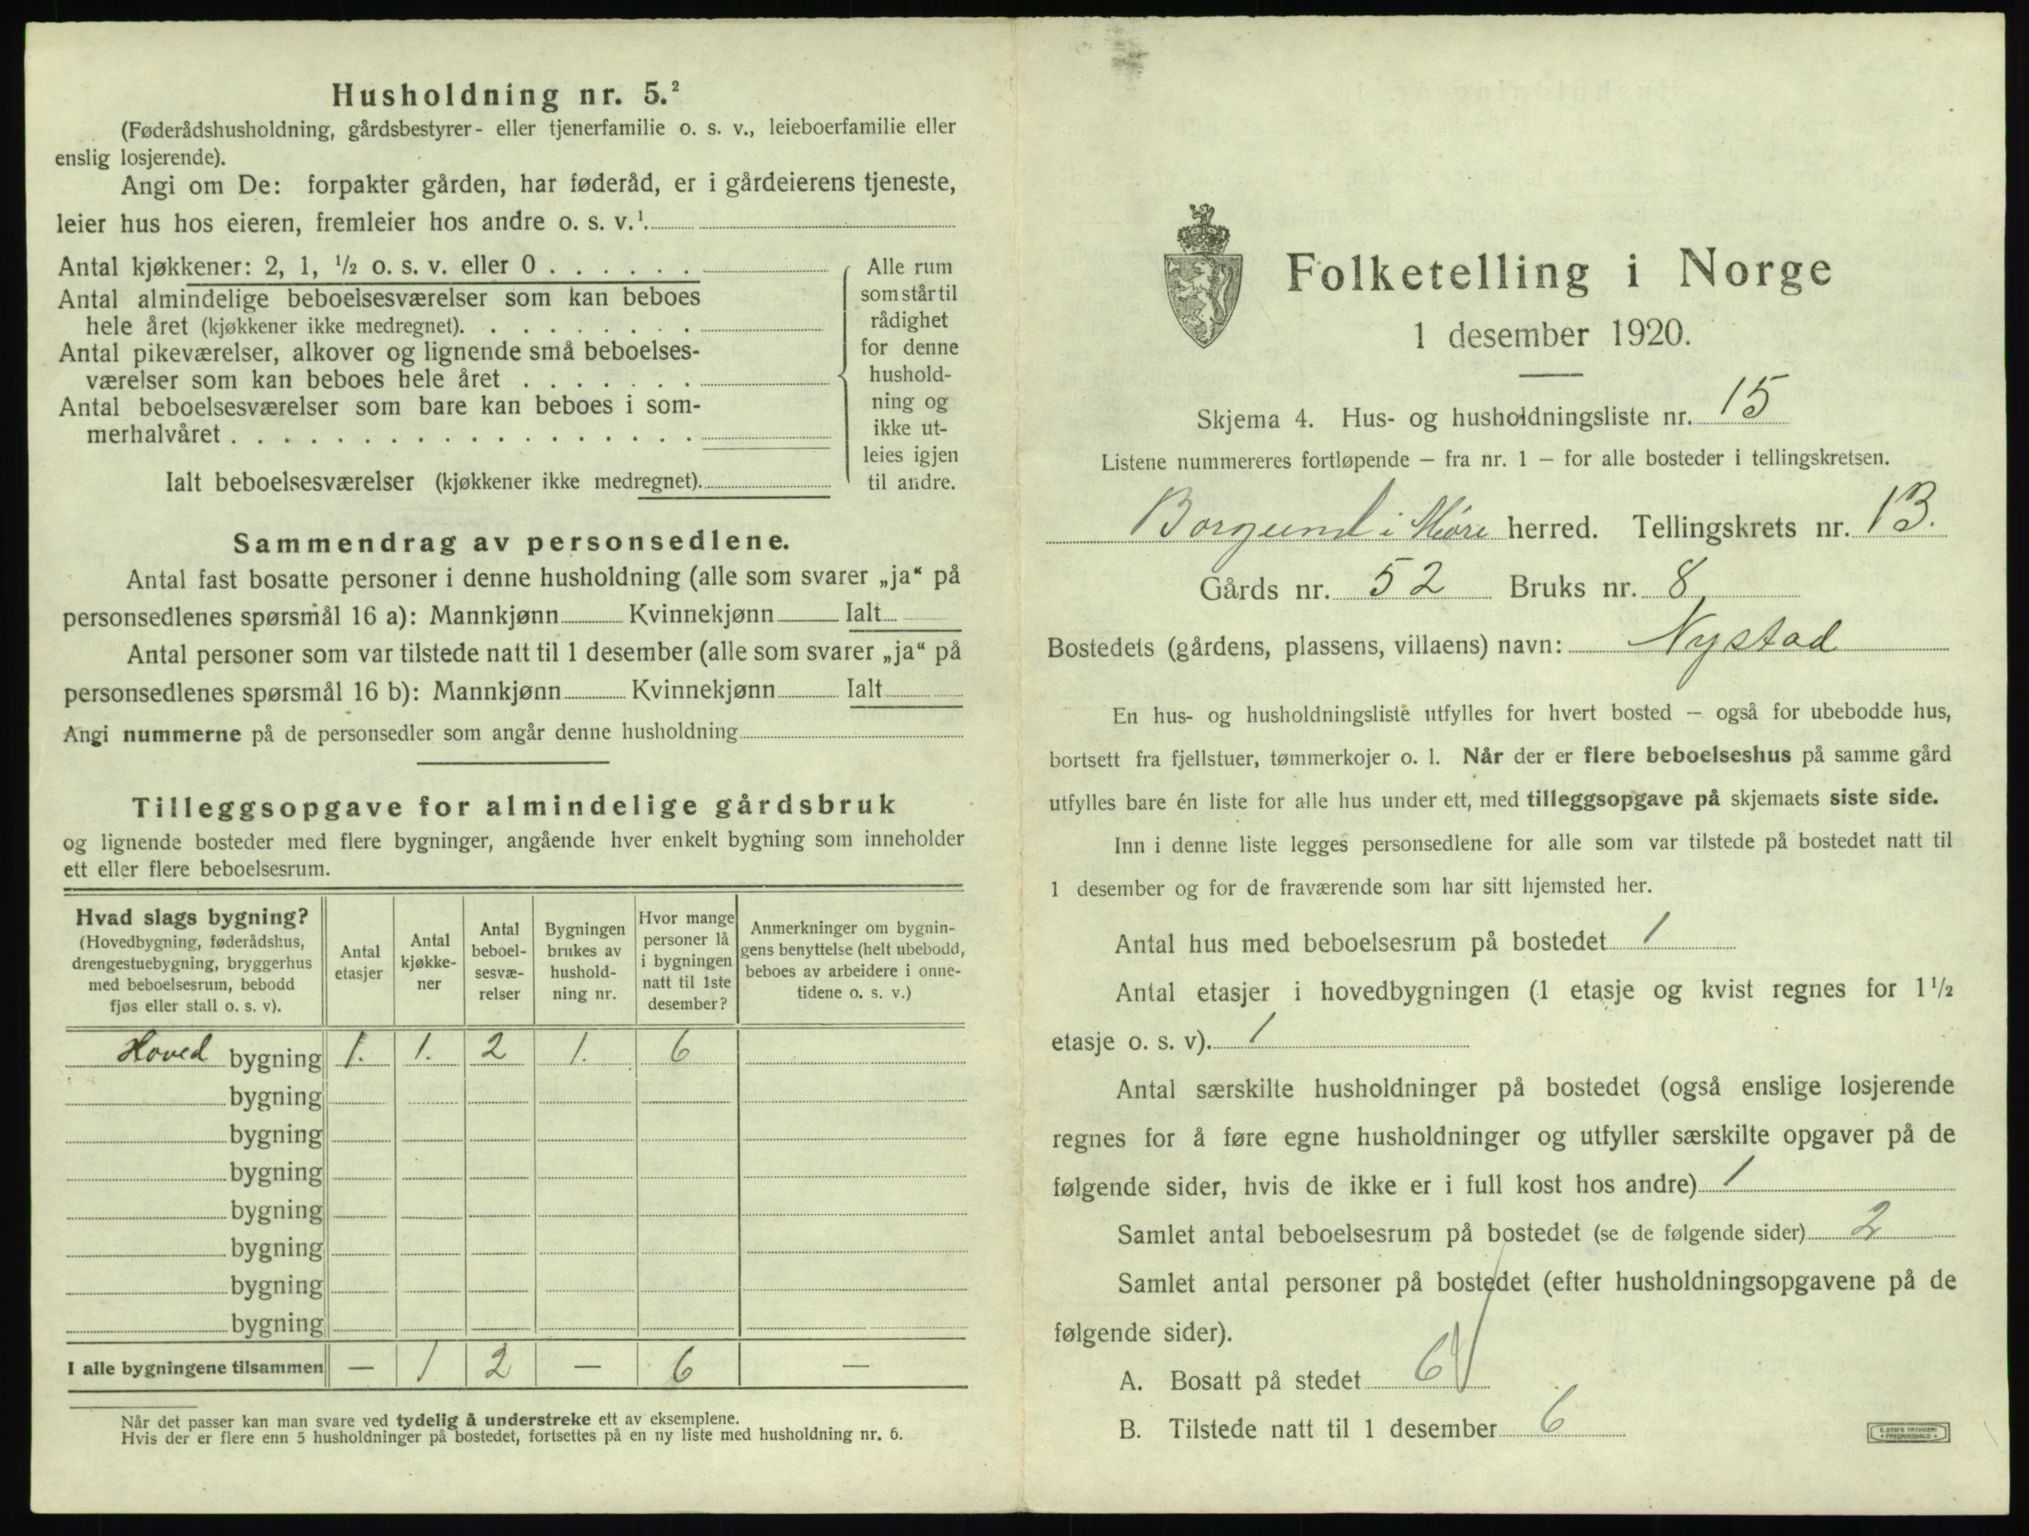 Husholdning nr. 5.²
(Føderådshusholdning, gårdsbestyrer- eller tjenerfamilie o. s. v., leieboerfamilie eller
enslig losjerende).
Angi om De: forpakter gården, har føderåd, er i gårdeierens tjeneste,
leier hus hos eieren, fremleier hos andre o. s. v.¹.
Antal kjøkkener: 2, 1, ½ o. s. v. eller 0 . . . . . .
Antal almindelige beboelsesværelser som kan beboes
hele året (kjøkkener ikke medregnet). . . . . . . . .
Antal pikeværelser, alkover og lignende små beboelses-
værelser som kan beboes hele året . . . . . . .
Antal beboelsesværelser som bare kan beboes i som-
merhalvåret . . . . . . . . . . . . . . . . . .
Ialt beboelsesværelser (kjøkkener ikke medregnet).
Alle rum
som står til
rådighet
for denne
hushold-
ning og
ikke ut-
leies igjen
til andre.
Sammendrag av personsedlene.
Antal fast bosatte personer i denne husholdning (alle som svarer „ja“ på
personsedlenes spørsmål 16 a): Mannkjønn Kvinnekjønn Ialt
Antal personer som var tilstede natt til 1 desember (alle som svarer „ja“ på
personsedlenes spørsmål 16 b): Mannkjønn Kvinnekjønn Ialt
Angi nummerne på de personsedler som angår denne husholdning
Tilleggsopgave for almindelige gårdsbruk
og lignende bosteder med flere bygninger, angående hver enkelt bygning som inneholder
ett eller flere beboelsesrum.
Hvad slags bygning?
(Hovedbygning, føderådshus,
drengestuebygning, bryggerhus
med beboelsesrum, bebodd
fjøs eller stall o. s. v).
Antal
etasjer
Antal
kjøkke-
ner
Antal
beboel-
sesvæ-
relser
Bygningen
brukes av
hushold-
ning nr.
Hvor mange
personer lå
i bygningen
natt til 1ste
desember?
Anmerkninger om bygnin-
gens benyttelse (helt ubebodd,
beboes av arbeidere i onne-
tidene o. s. v.)
Hoved bygning 1. 1. 2 1. 6
bygning
bygning
bygning
bygning
bygning
bygning
bygning
I alle bygningene tilsammen — 1 2 — 6 —
Når det passer kan man svare ved tydelig å understreke ett av eksemplene.
Hvis der er flere enn 5 husholdninger på bostedet, fortsettes på en ny liste med husholdning nr. 6.
Folketelling i Norge
1 desember 1920.
Skjema 4. Hus- og husholdningsliste nr. 15
Listene nummereres fortløpende – fra nr. 1 – for alle bosteder i tellingskretsen.
Borgund i Møre herred. Tellingskrets nr. 13.
Gårds nr. 52 Bruks nr. 8
Bostedets (gårdens, plassens, villaens) navn: Nystad
En hus- og husholdningsliste utfylles for hvert bosted – også for ubebodde hus,
bortsett fra fjellstuer, tømmerkojer o. l. Når der er flere beboelseshus på samme gård
utfylles bare én liste for alle hus under ett, med tilleggsopgave på skjemaets siste side.
Inn i denne liste legges personsedlene for alle som var tilstede på bostedet natt til
1 desember og for de fraværende som har sitt hjemsted her.
Antal hus med beboelsesrum på bostedet 1
Antal etasjer i hovedbygningen (1 etasje og kvist regnes for 1½
etasje o. s. v). 1
Antal særskilte husholdninger på bostedet (også enslige losjerende
regnes for å føre egne husholdninger og utfyller særskilte opgaver på de
følgende sider, hvis de ikke er i full kost hos andre) 1
Samlet antal beboelsesrum på bostedet (se de følgende sider) 2
Samlet antal personer på bostedet (efter husholdningsopgavene på de
følgende sider).
A. Bosatt på stedet 6
B. Tilstede natt til 1 desember 6